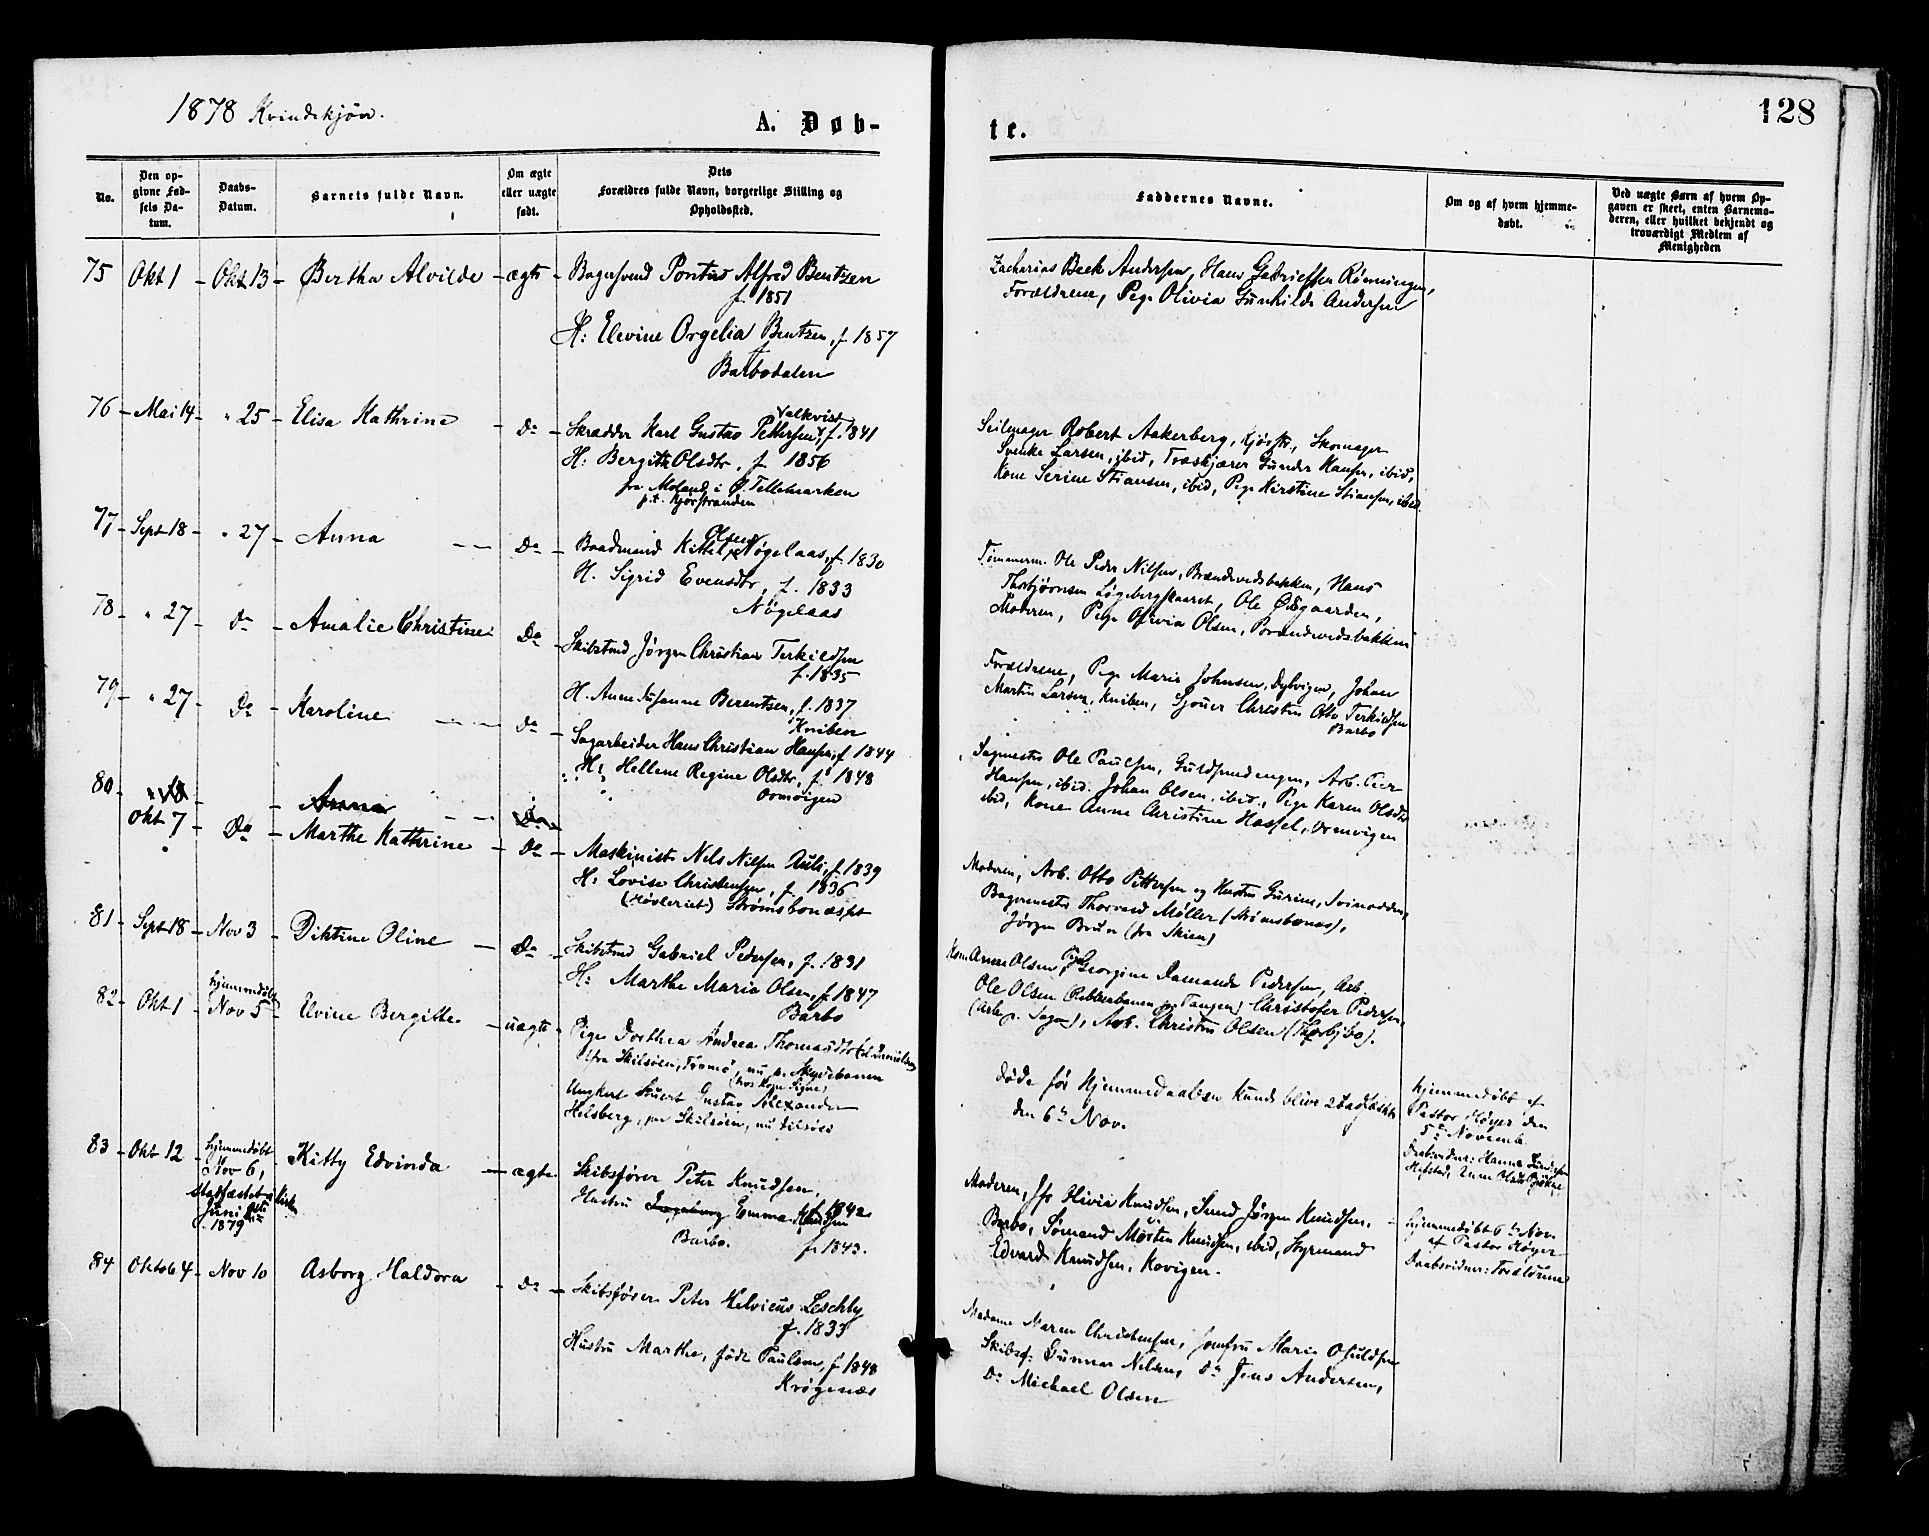 1878 Kvindekjøn.
A. Døb-
te.
128
No.
Den op-
givne Fød-
sels Da-
tum.
Daabs-
Datum.
Barnets fulde Navn.
Om ægte
eller uægte
født.
Dets
Forældres fulde Navn, borgerlige Stilling og
Opholdssted.
Faddernes Navne.
Om og af hvem hjemme-
døbt.
Ved uægte Børn af hvem Op-
gaven er skeet, enten Barnemo-
deren, eller hvilket bekjendt og
troværdigt Medlem af
Menigheden
75 Okt 1 - Okt 13 - Bertha Alvilde - ægte - Bagersvend Pontus Alfred Bentzen
f. 1851
H: Elevine Orgelia Bentzen, f 1857
Barbodalen
Zacharias Beck Andersen, Hans Gabrielsen Rønningen,
Forældrene, Pige Olivia Gunhilde Andersen
76 - Mai 14 - " 25 - Elisa Kathrine - Do - Skrædder Karl Gustav Pettersen Valkvist, f. 1841
H: Bergith Olsdtr, f 1856
fra Moland i Ø. Tellemarken
p.t. Kjørstranden
Seilmager Robert Aakerberg, Kjørstr, Skomager
Svenke Larsen, ibid, Træskjærer Gunder Hansen, ibid,
Kone Serine Stiansen, ibid, Pige Kirstine Stiansen, ibid.
77 - Sept 18 - " 27 - Anna - Do - Baadmand Kittel Olsen Nøgelaas, f. 1830
H. Sigrid Evensdtr, f. 1833
Nøgelaas
Tømmerm. Ole Peder Nilsen, Brændevedsbakken, Hans
Thorbjørnsen Løgebergskaaret, Ole Ødegaarden,
Moderen, Pige Olivia Olsen, Brændevedsbakken
78 - " 27 - Do - Amalie Christine - Do - Skibstmd Jørgen Christian Terkildsen
f. 1835
H. Anne Susanne Berentsen, f. 1837
Kniben
Forældrene, Pige Marie Johnsen, Dybvigen, Johan
Martin Larsen, Kniben, Sjouer Christen Otto Terkildsen
Barbo
79 - " 27 - Do - Karoline - Do - Sagarbeider Hans Christian Hansen, f 1844
H: Hellene Regine Olsdtr, f 1848
Ormvigen
Sagmester Ole Paulsen, Guldsmedengen, Arb. Peer
Hansen, ibid. Johan Olsen, ibid., Pige Karen Olsdtr
ibid, Kone Anne Christine Hassel, Ormvigen
80 - Anna - Do
Okt 7 - Do - Marthe Kathrine - Do - Maskinist Nels Nilsen Auli, f. 1839
H: Lovise Christensen, f. 1836
(Høvleriet) Strømsbonæsset
Moderen, Arb. Otto Pettersen og Hustru Gurine, Svinodden,
Bagermester Thorvald Møller (Strømsbonæs),
Jørgen Bruun (fra Skien)
81 - Sept 18 - Nov 3 - Diktine Oline - Do - Skibstmd Gabriel Pedersen, f. 1831
H: Marthe Marie Olsen, f. 1847
Barbo
Kone Anne Olsen, Pige Georgine Damande Pedersen, Arb.
Ole Olsen (Rebberbanen paa Tangen) Christofer Pedersen,
(Arb. p. Sagen), Arb. Christen Olsen (Thorbjbo).
82 - Okt 1 - hjemmedøbt
Nov 5 - Elvine Bergitte - uægte - Pige Dorthea Andrea Thomasdtr
fra Skilsøen, Tromø, nu p. Skydebanen
(hos Kone Signe)
Ungkarl Stuert Gustav Alexander
Helsberg, paa Skilsøen, nu tilsøes
Døde før Hjemmedaaben kunde blive stadfæstet
den 6te Nov.
hjemmedøbt af
Pastor Høyer den
5te Novemb.
83 - Okt 12 - hjemmedøbt
Nov 6,
stadfæstet i Kirken
Juni
1879
Kitty Edvinda - ægte - Skibsfører Peter Knudsen,
f. 1842
Hustru Ingeborg Emma Knudsen
Barbo. f. 1843.
Moderen, Jfr Olivia Knudsen, Smed Jørgen Knudsen,
Barbo, Sømand Morten Knudsen, ibid, Styrmand
Edvard Knudsen, Kovigen.
hjemmedøbt 6te Nov
af Pastor Høyer
Daabsvidner: Forældrene
84 Oktob 4 - Nov 10 Asborg Haldora - Do - Skibsfører Peter Helvicus Leschly
f. 1833
Hustru Marthe, født Paulsen, f 1848
Krøgenæs
Madame Maren Christensen, Jomfru Marie Osuldsen
Skibsf: Gunnar Nelsen, Do Jens Andersen,
Do Michael Olsen